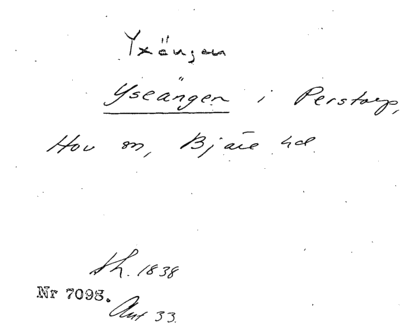 Yxängen
Yseängen i Perstorp,
Hov sn, Bjäre hd
Sh. 1838
Nr 7098.
Ant 33.